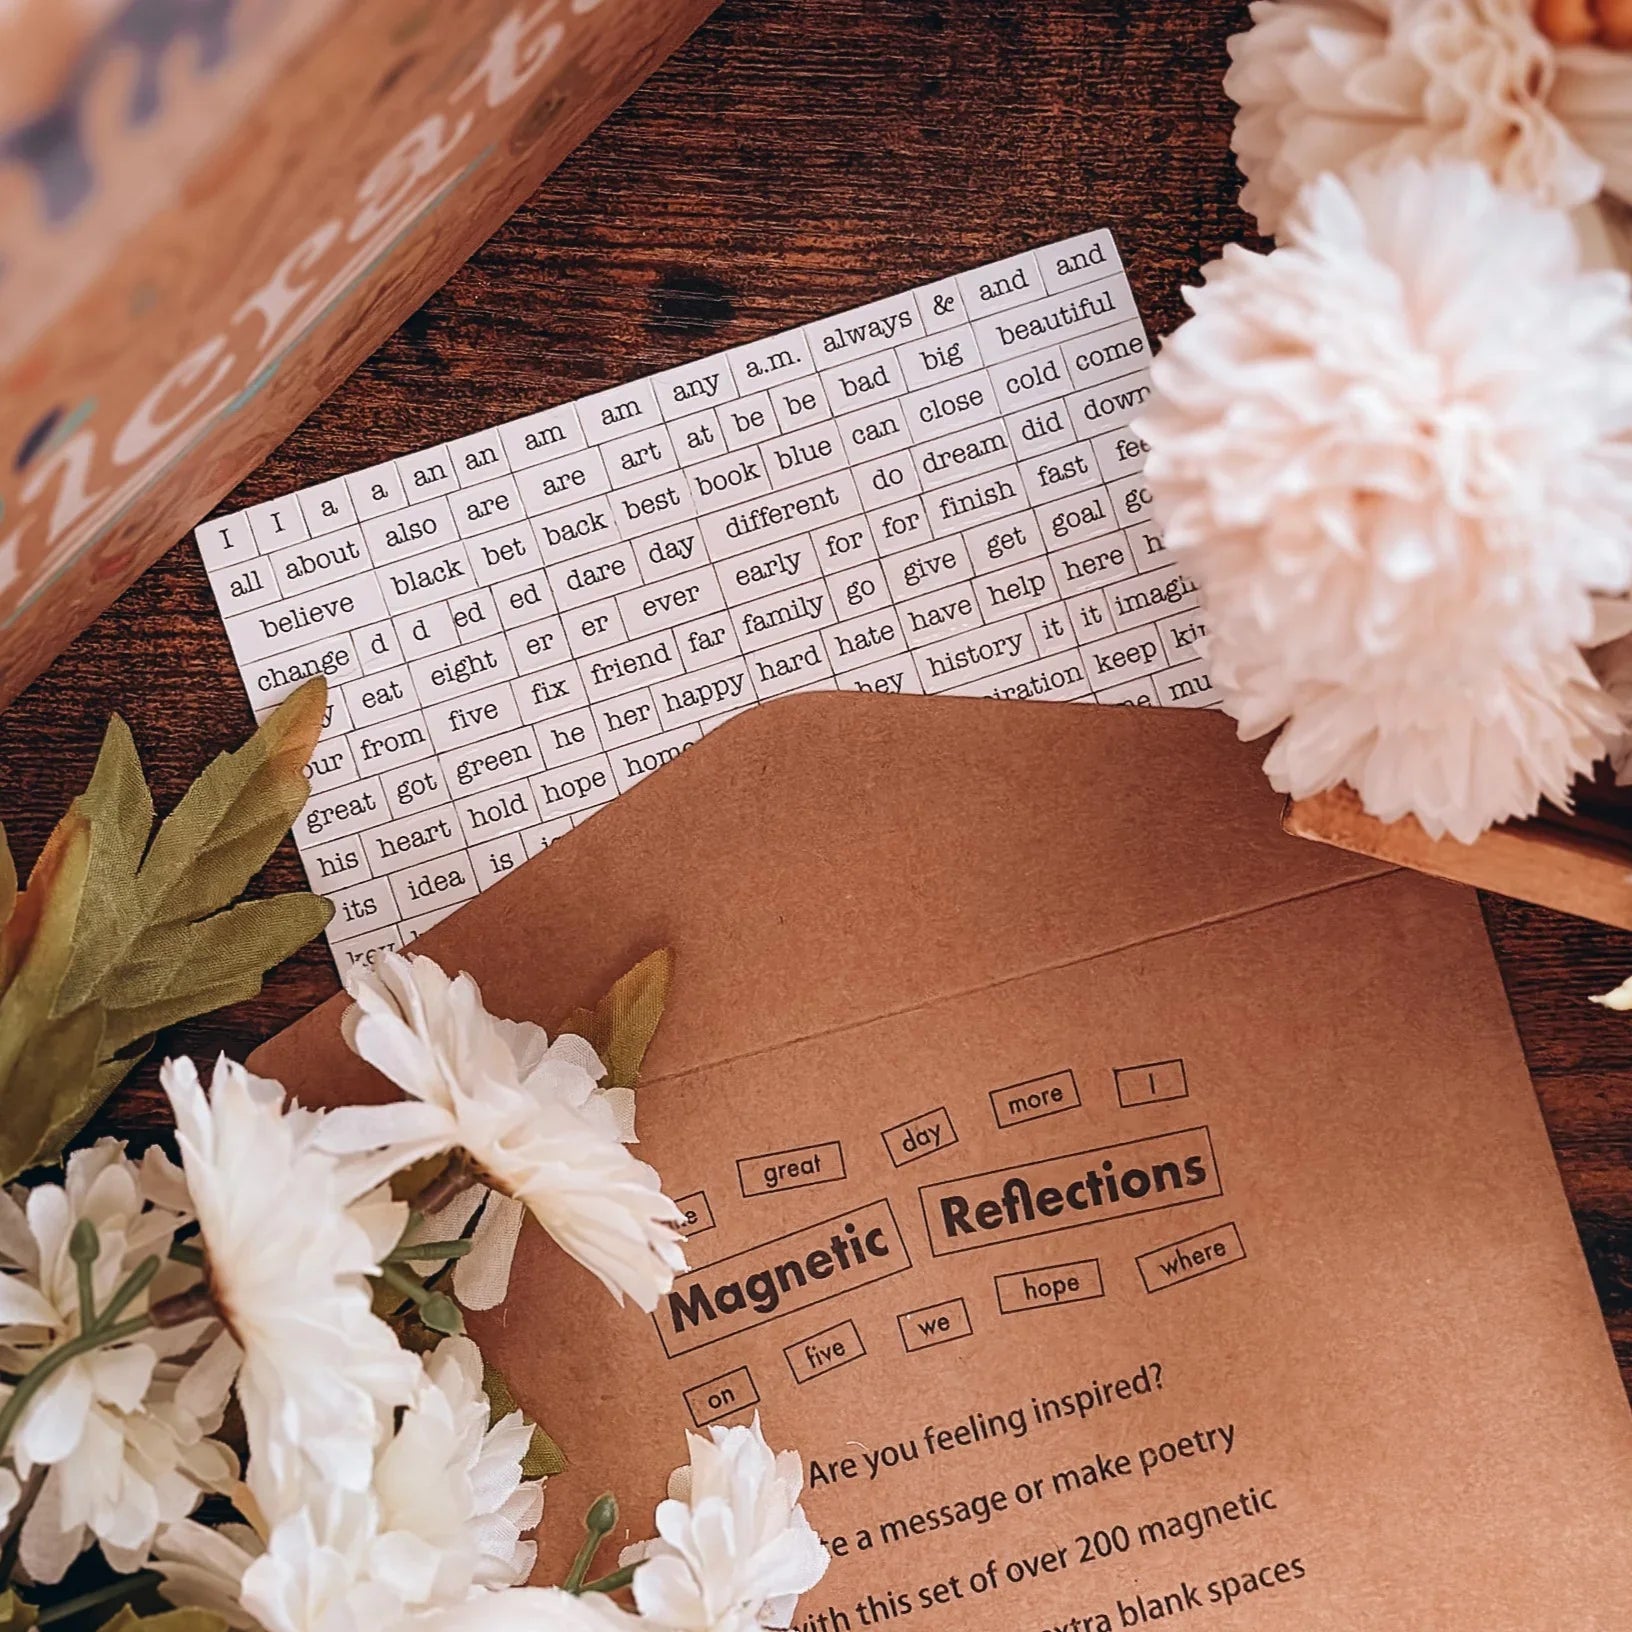 I I a a an an am am any a.m. always & and and
all about also are are art at be be bad big beautiful
believe black bet back best book blue can close cold come
change d d ed ed dare day different do dream did down
eat eight er er ever early for for finish fast
from five fix friend far family go give get goal
great got green he her happy hard hate have help here
his heart hold hope history it it
its idea is keep
key
great day more I
Magnetic Reflections
on five we hope where
Are you feeling inspired?
a message or make poetry
with this set of over 200 magnetic
extra blank spaces